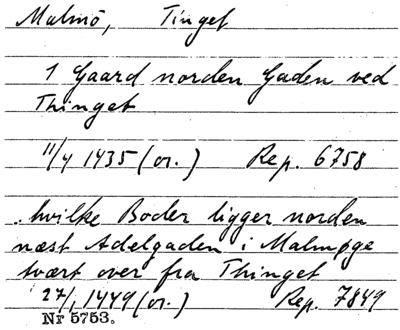 Malmö, Tinget
1 Gaard norden Gaden ved
Thinget
11/4 1435 (or.) Rep. 6758
. hvilke Boder ligger norden
næst Adelgaden i Malmøge
tvært over fra Thinget
27/1 1449 (or.) Rep. 7849
Nr 5753.